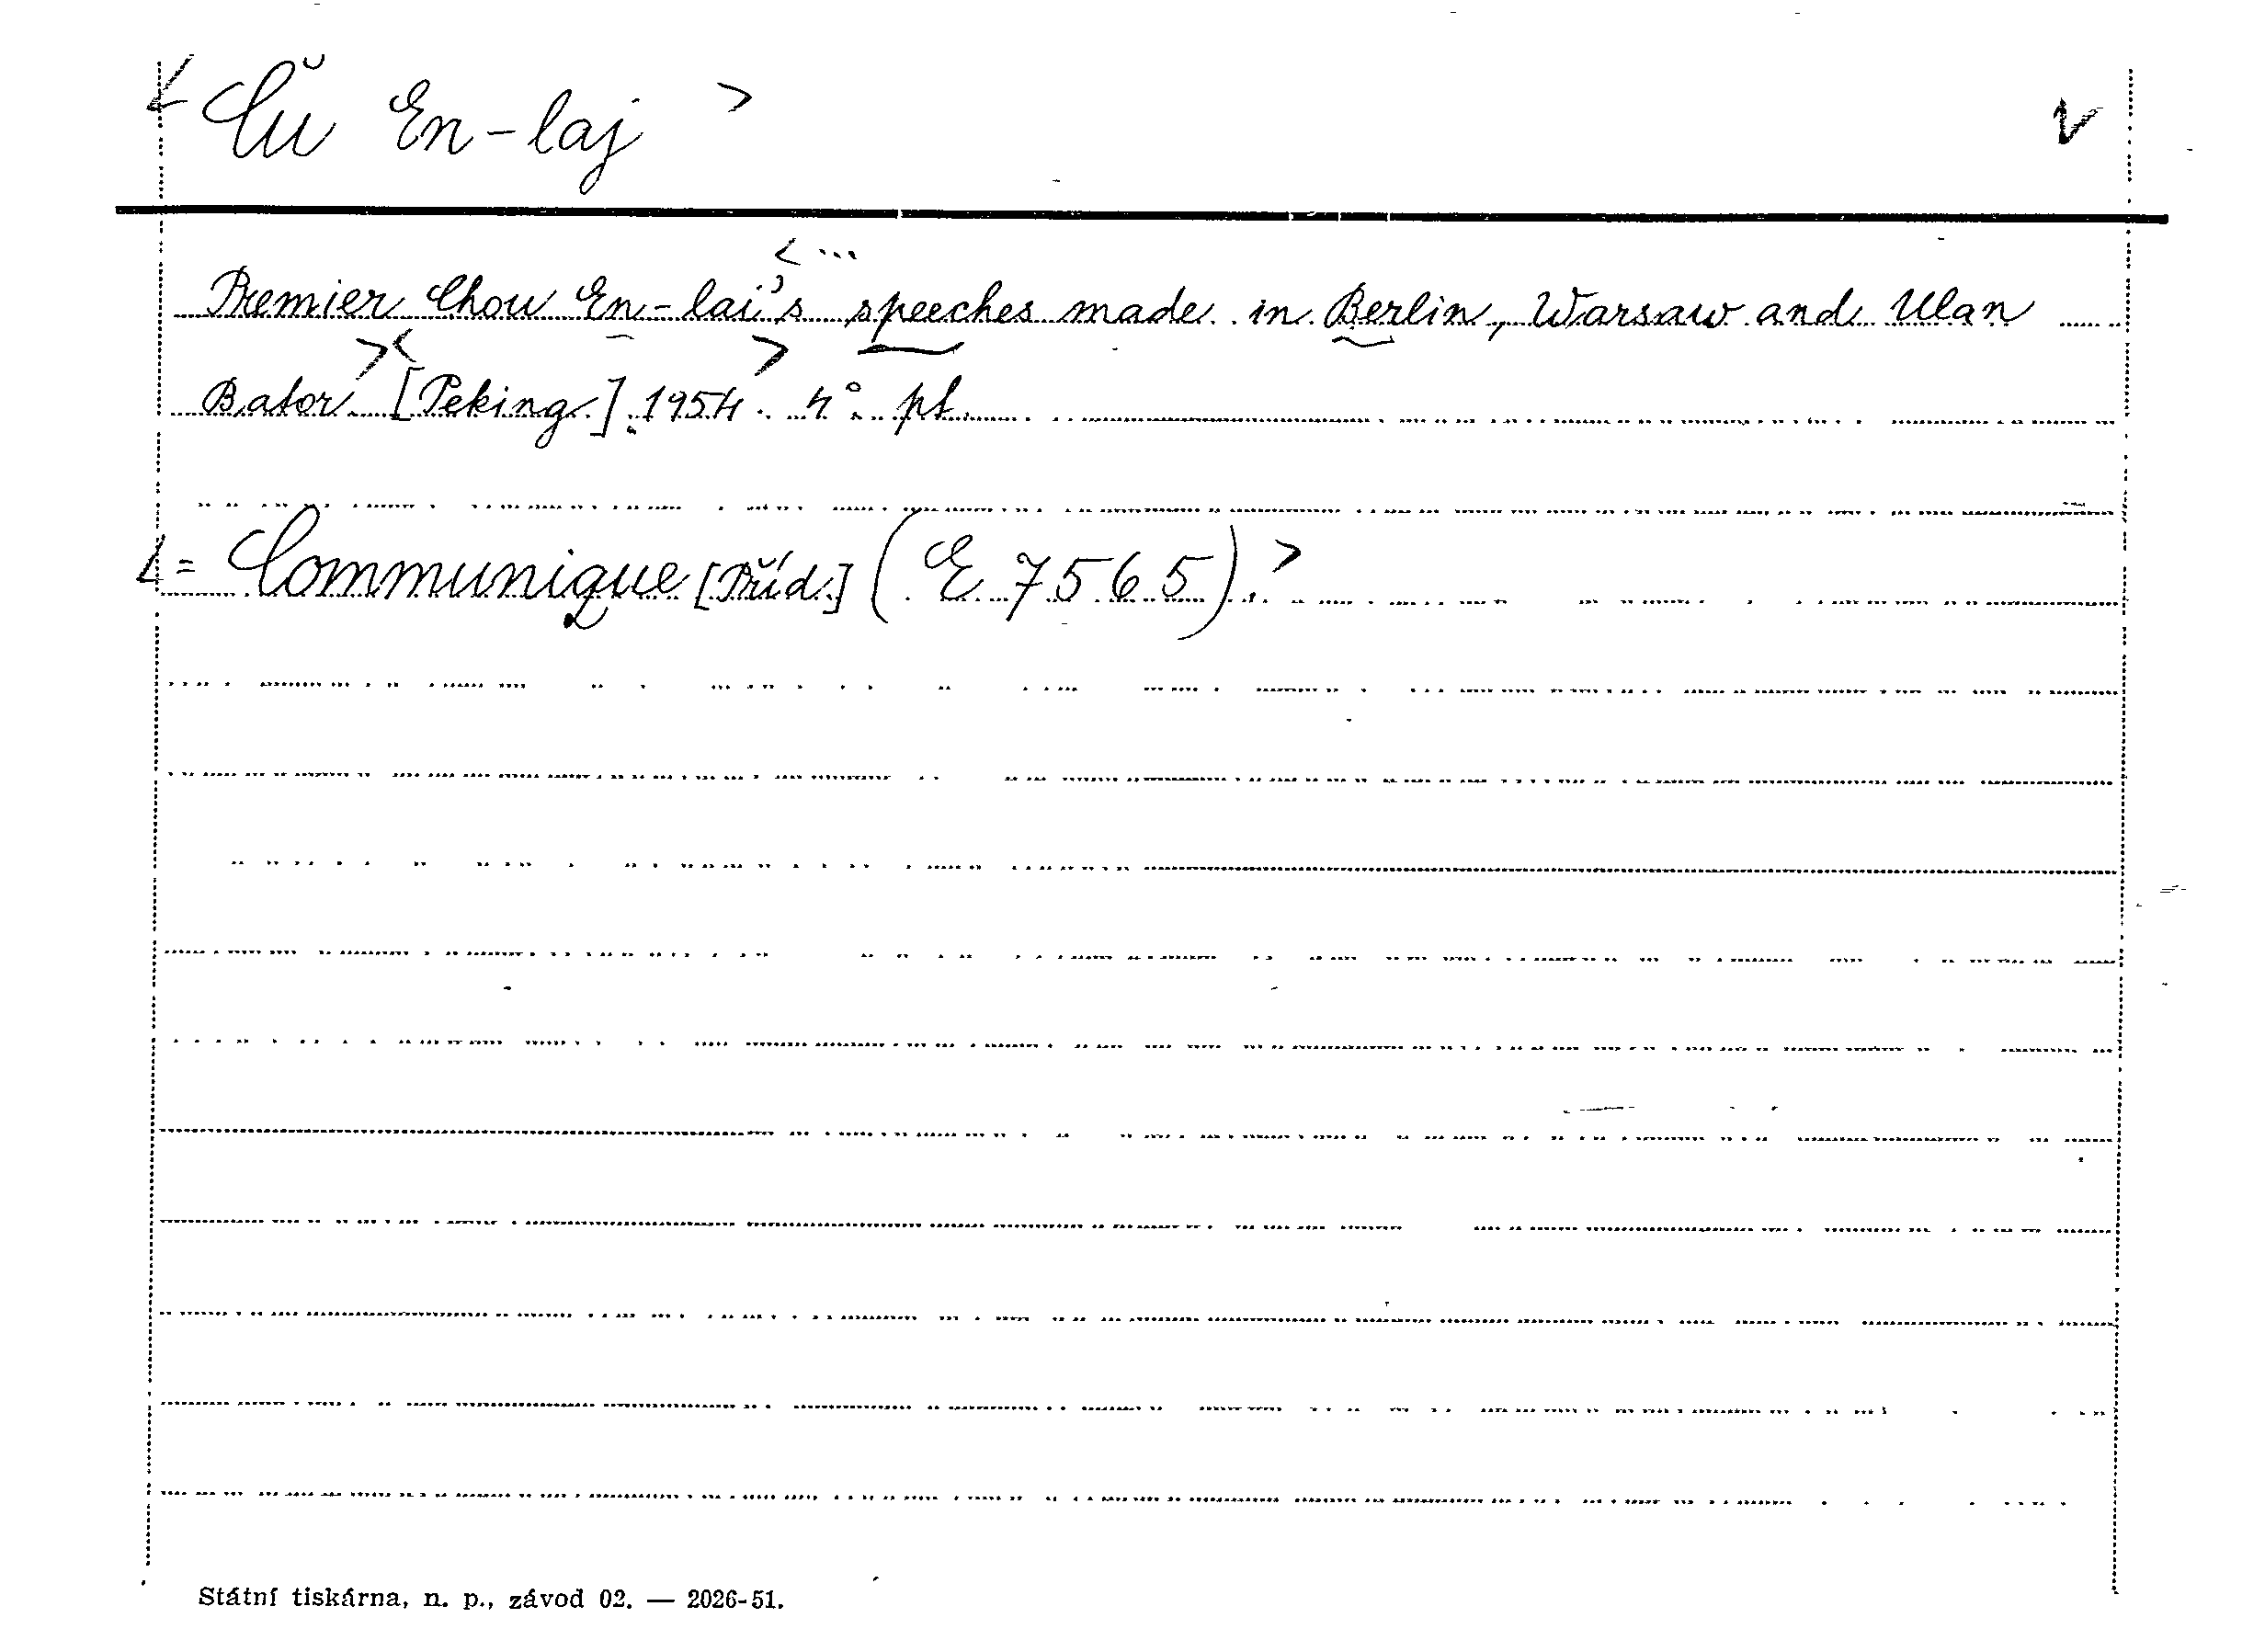 < Čú En-laj > v
< ...
Premier Chou En-lai's speeches made in Berlin, Warsaw and Ulan
Bator. >< [Peking.] 1954. > 4°. pt.
< = Communique [Příd.] (E 7565). >
Státní tiskárna, n. p., závod 02. — 2026-51.